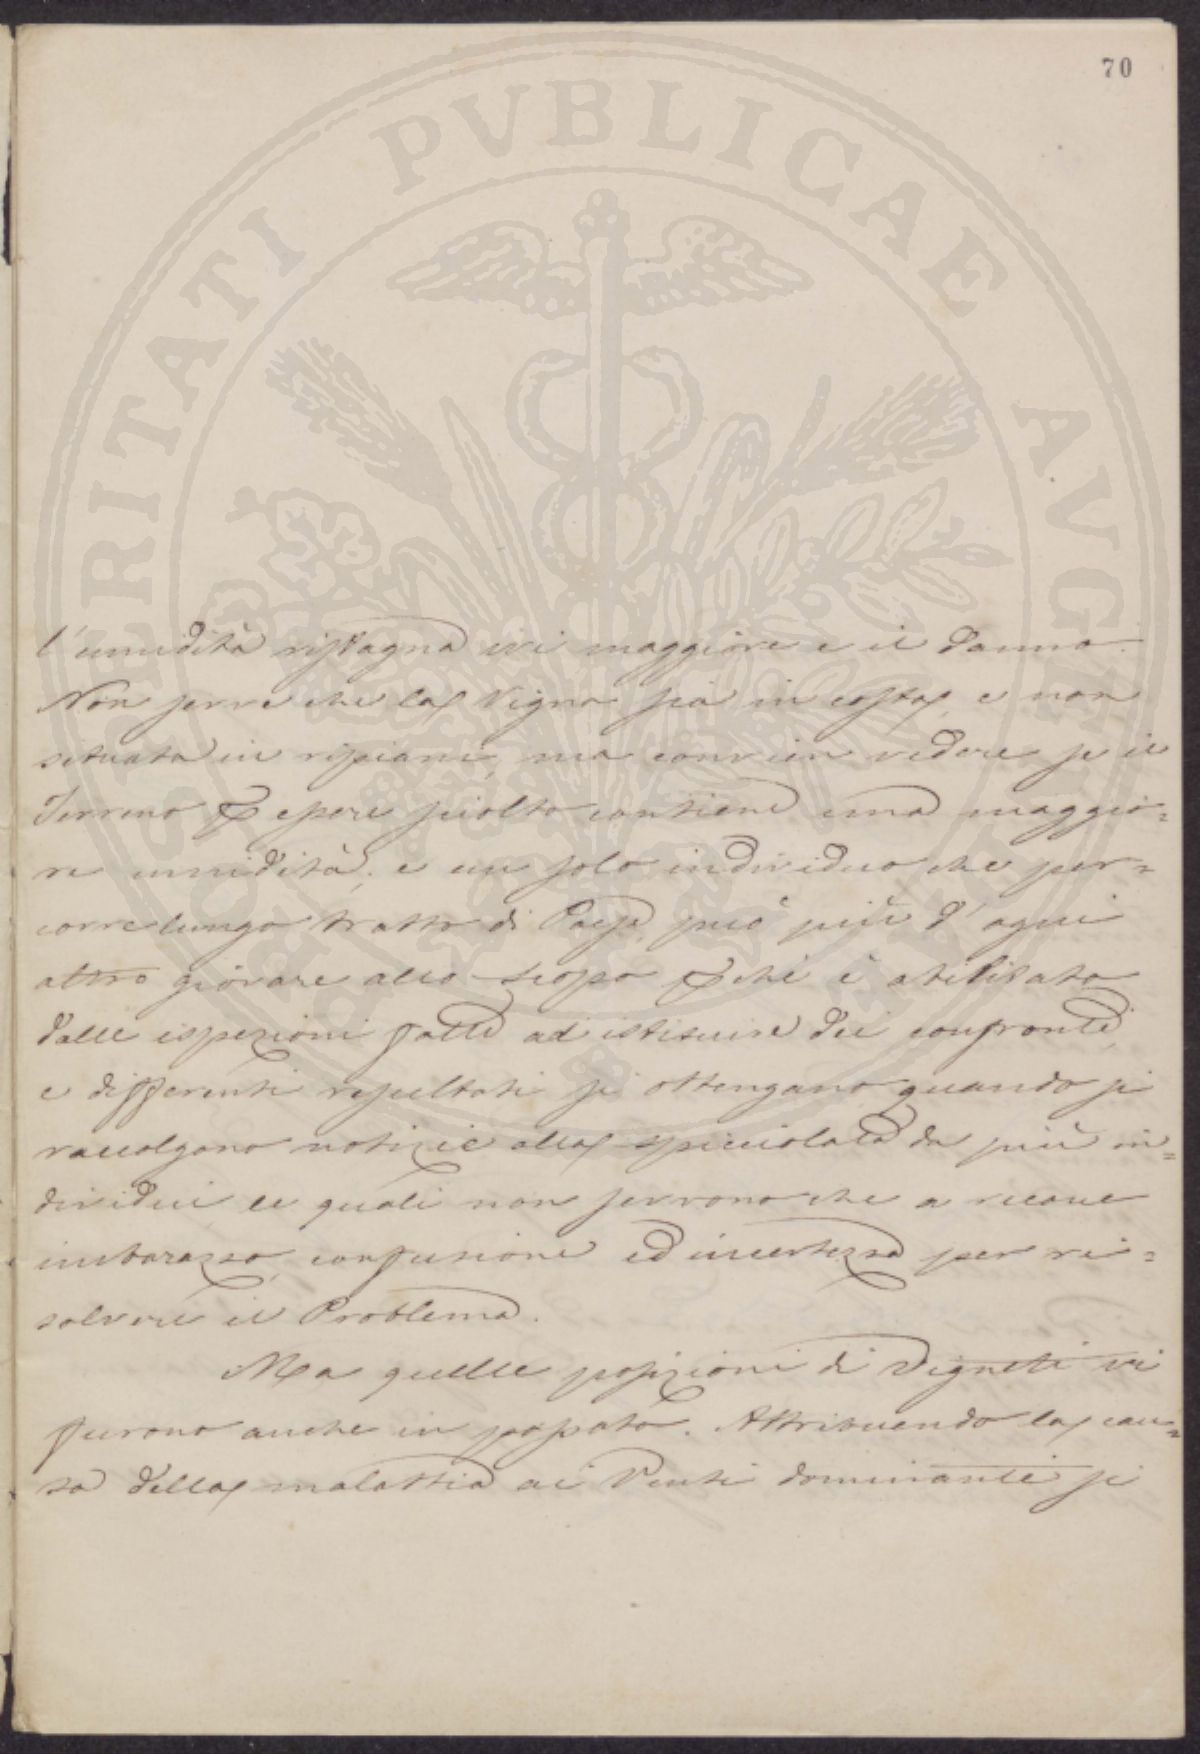 70
l'umidità ristagna ivi maggiore e il danno.
Non serve che la Vigna sia in costa, e non
situata in ripiani, ma convien vedere se il
Terreno p essere sciolto contiene una maggio=
re umidità, e un solo individuo che per=
corre lungo tratto di Paese può più d'ogni
altro giovare allo scopo pchè è abilitato
dalle ispezioni fatte ad istituire dei confronti,
e differenti resultati si ottengano quando si
raccolgono notizie alla spicciolata da più in=
dividui le quali non servono che a recare
imbarazzo, confusione ed incertezza per ri=
solvere il Problema.
Ma quelle posizioni di Vigneti vi
furono anche in passato. Attribuendo la cau=
sa della malattia ai Venti dominanti si
SPERITATI PVBLICAE AVGENDAE